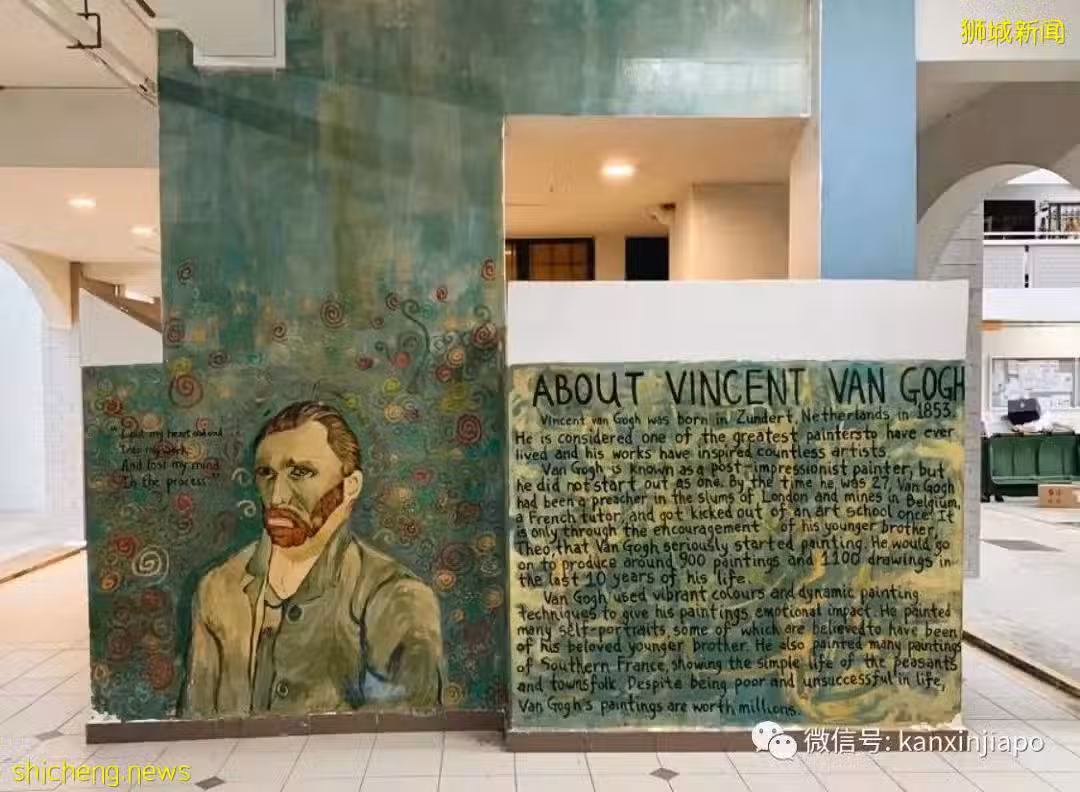 狮城新闻
ABOUT VINCENT VAN GOGH
Vincent van Gogh was born in Zundert, Netherlands in 1853.
He is considered one of the greatest painters to have ever
lived and his works have inspired countless artists.
Van Gogh is known as a post-impressionist painter, but
he did not start out as one. By the time he was 27, Van Gogh
had been a preacher in the slums of London and mines in Belgium,
a French tutor, and got kicked out of an art school once. It
is only through the encouragement of his younger brother,
Theo, that Van Gogh seriously started painting. He would go
on to produce around 900 paintings and 1100 drawings in
the last 10 years of his life.
Van Gogh used vibrant colours and dynamic painting
techniques to give his paintings emotional impact. He painted
many self-portraits, some of which are believed to have been
of his beloved younger brother. He also painted many paintings
of Southern France, showing the simple life of the peasants
and townsfolk. Despite being poor and unsuccessful in life,
Van Gogh's paintings are worth millions.
my heart and
my work
And lost my mind
In the process."
微信号: kanxinjiapo
shicheng.news